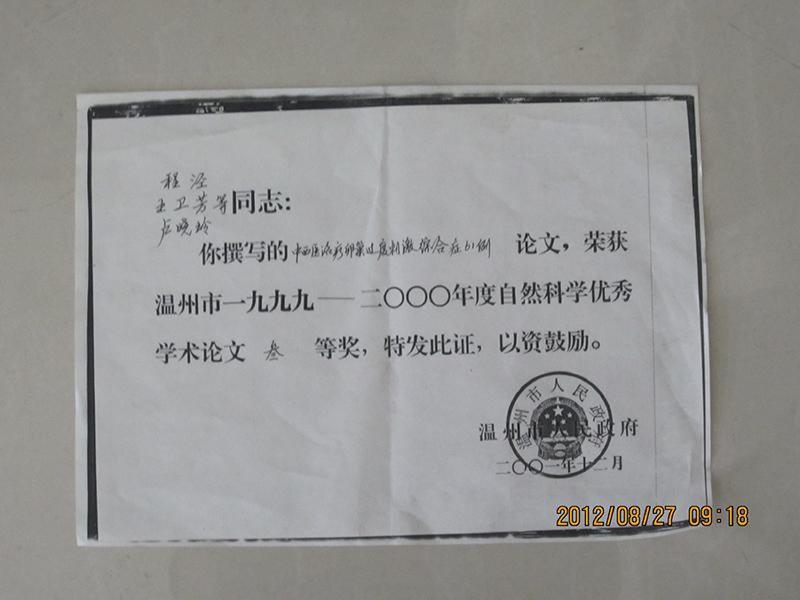 程泾
王卫芳等同志:
卢晓玲
你撰写的 中西医治疗卵巢过度刺激综合症61例 论文，荣获
温州市一九九九——二〇〇〇年度自然科学优秀
学术论文 叁 等奖，特发此证，以资鼓励。
温州市人民政府
温州市人民政府
二〇〇一年十二月
2012/08/27 09:18